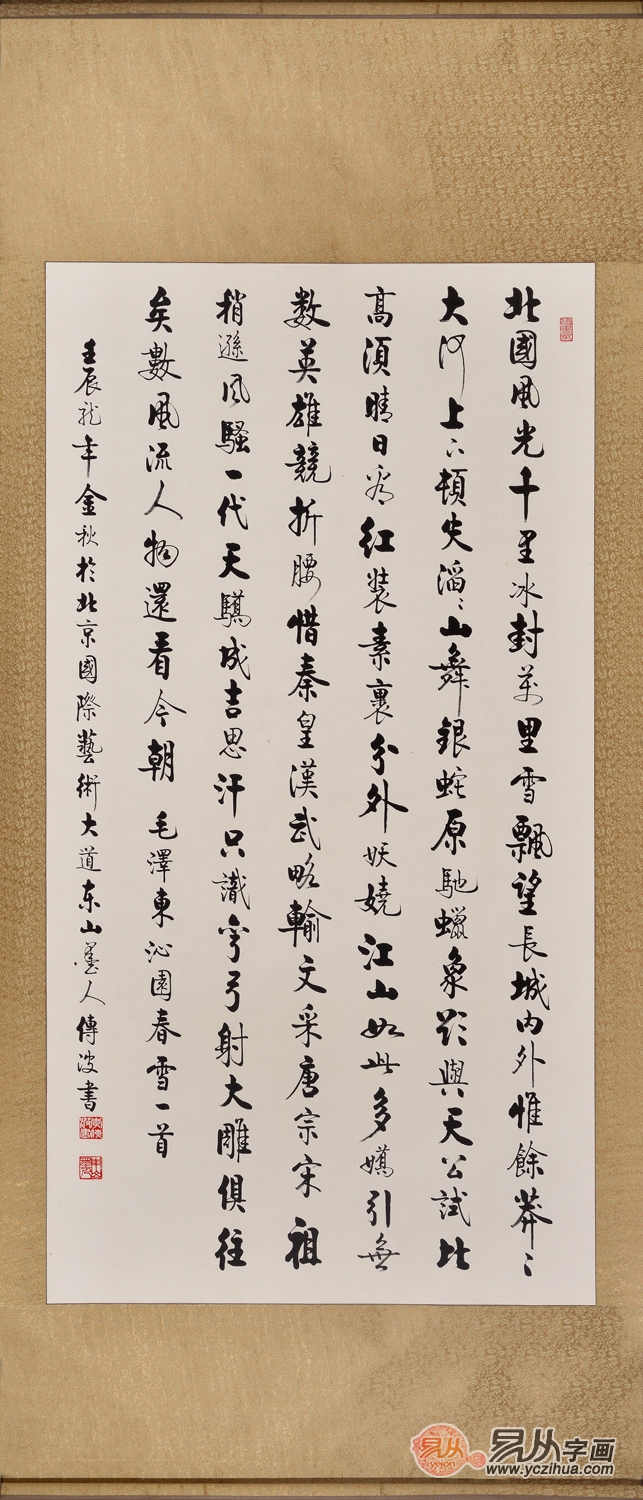 北國風光千里冰封萬里雪飄望長城内外惟餘莽〻
大河上下頓失滔〻山舞銀蛇原馳蠟象欲與天公試比
高須晴日看紅裝素裹分外妖嬈江山如此多嬌引無
数英雄競折腰惜秦皇漢武略輸文采唐宗宋祖
稍遜风騷一代天驕成吉思汗只識彎弓射大雕俱往
矣數風流人物還看今朝 毛澤東沁園春雪一首
壬辰龍年金秋於北京國際藝術大道东山墨人傳波書
易从字画
www.yczihua.com